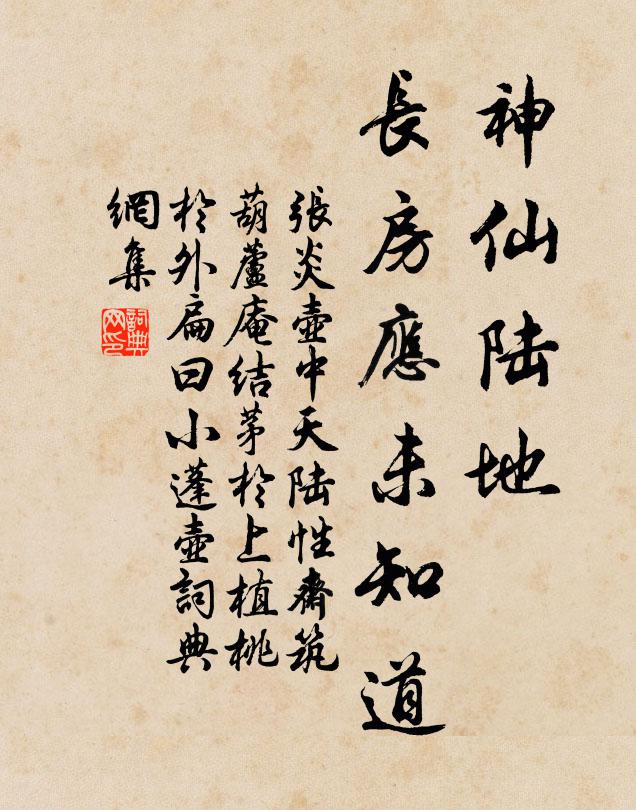 神仙陆地
長房應未知道
張炎壺中天陆性齋筑
葫蘆庵結茅於上植桃
於外扁曰小蓬壺詞典
網集
詞典
网印